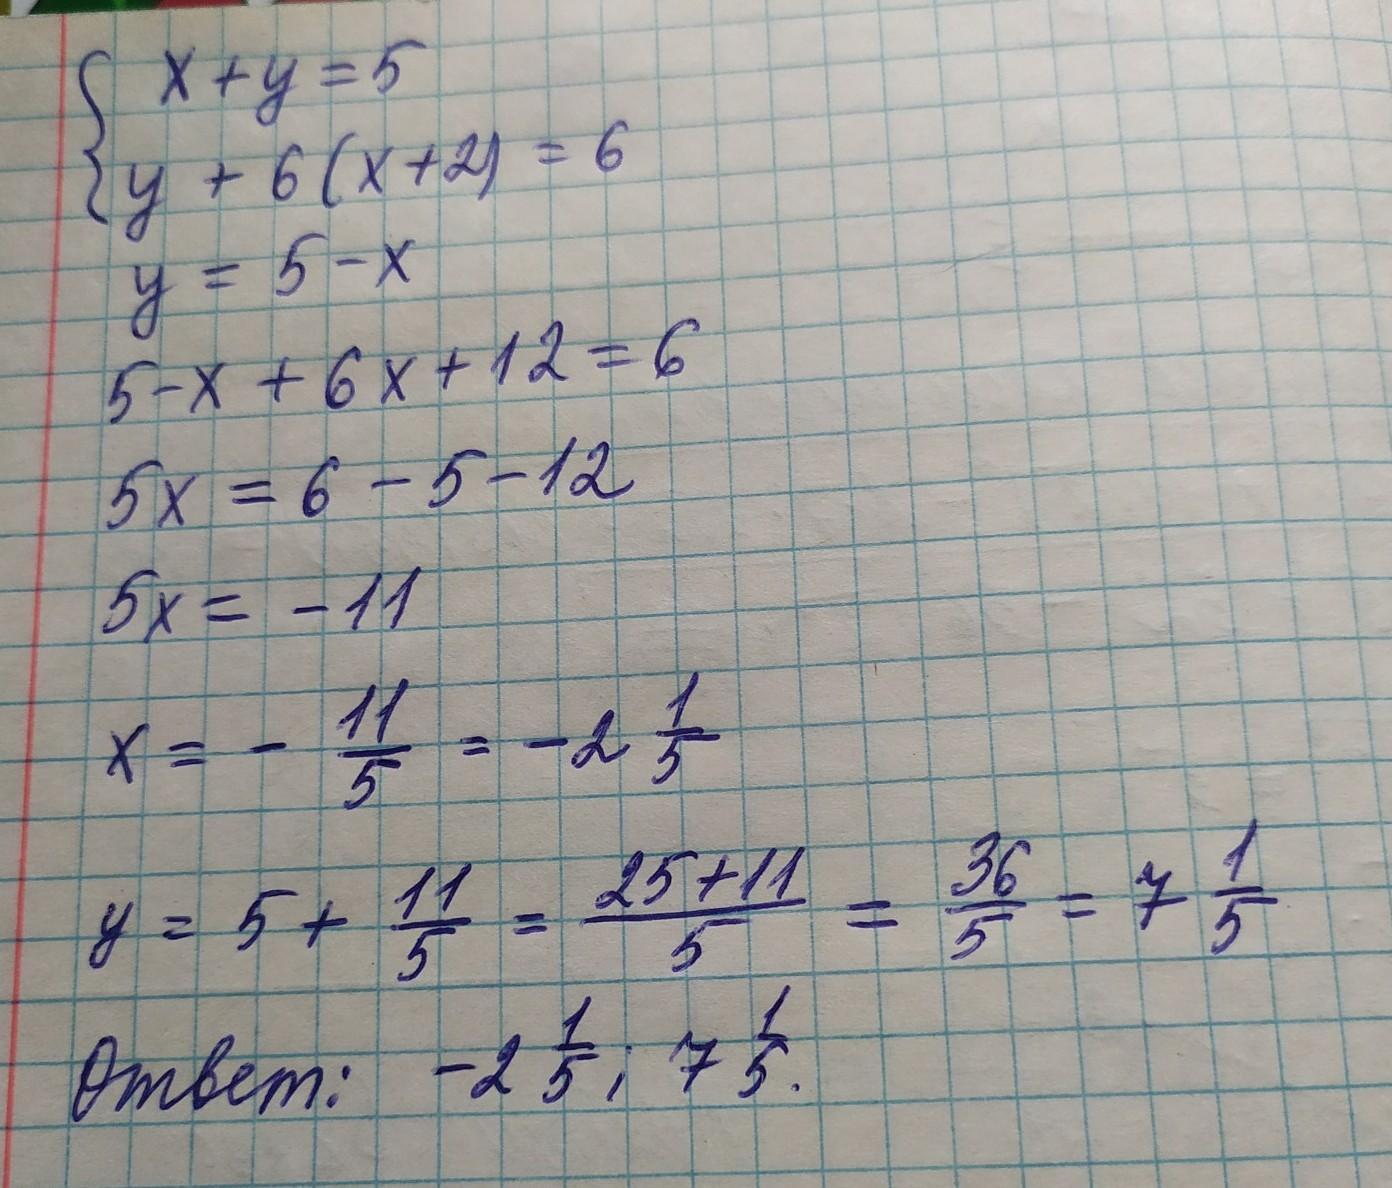 x + y = 5
y + 6(x + 2) = 6
y = 5 - x
5 - x + 6x + 12 = 6
5x = 6 - 5 - 12
5x = - 11
x = - 11/5 = - 2 1/5
y = 5 + 11/5 = (25 + 11)/5 = 36/5 = 7 1/5
Ответ: - 2 1/5; 7 1/5.